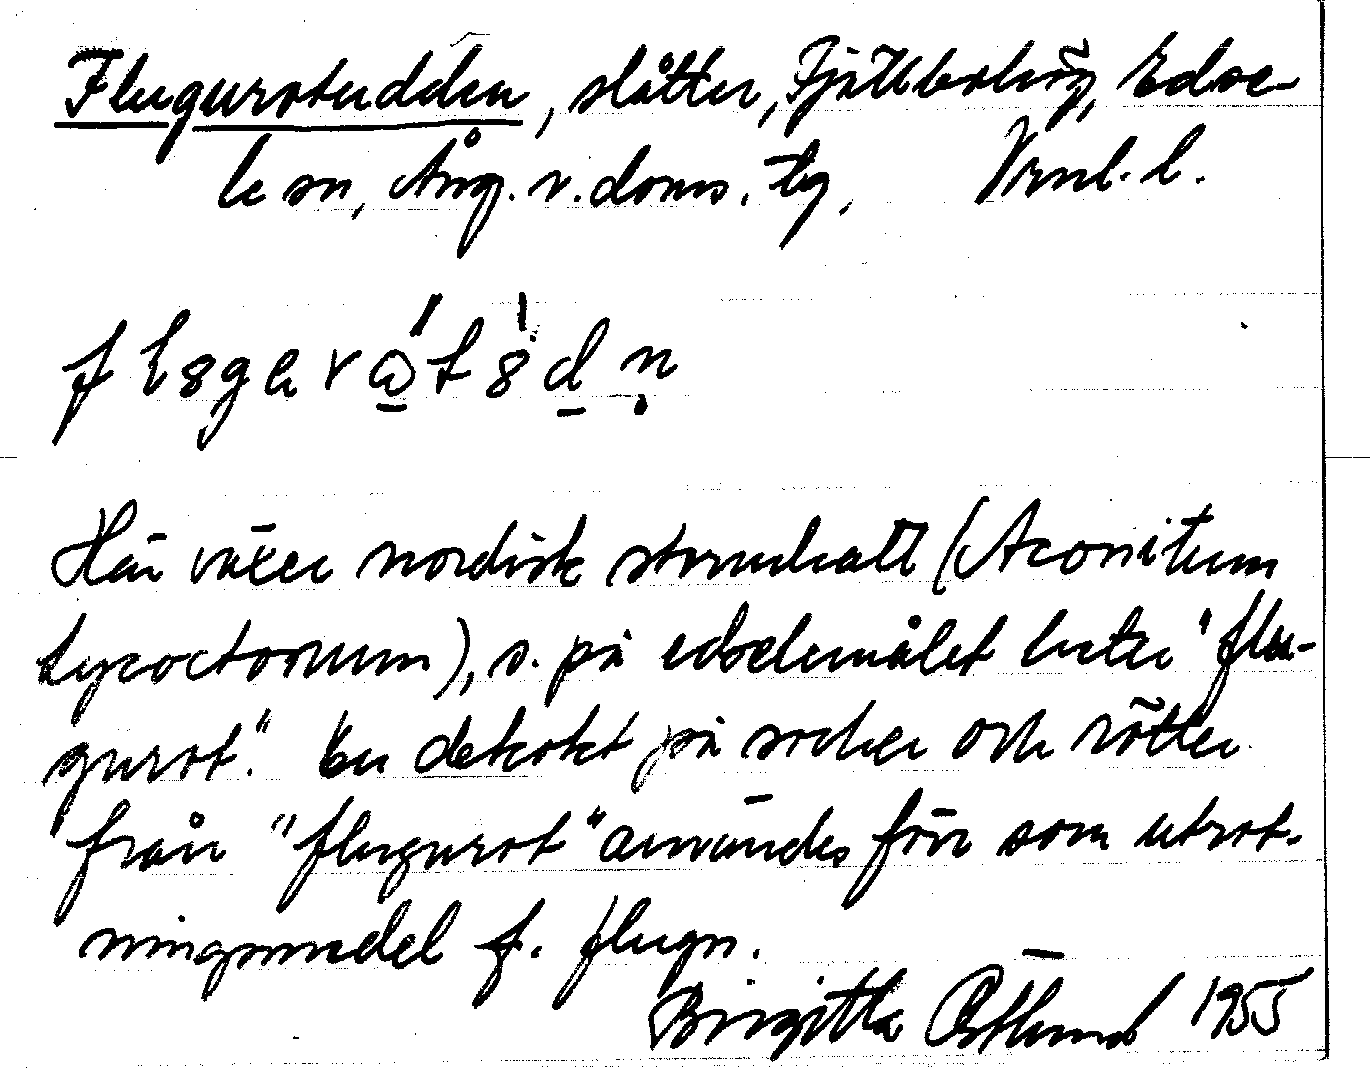 Flugurotudden, slåtter, Fjällbohög, Edse-
le sn, Ång. v. doms. tg, Vrnl. l.
f l 8 g a r ω t 8 d n
Här växer nordisk stormhatt (Aconitum
Lycoctonum), s. på edselemålet heter "flu-
gurot". En dekokt på socker och rötter
från "flugurot" användes förr som utrot-
ningsmedel f. flugn.
Birgitta Östlund 1955